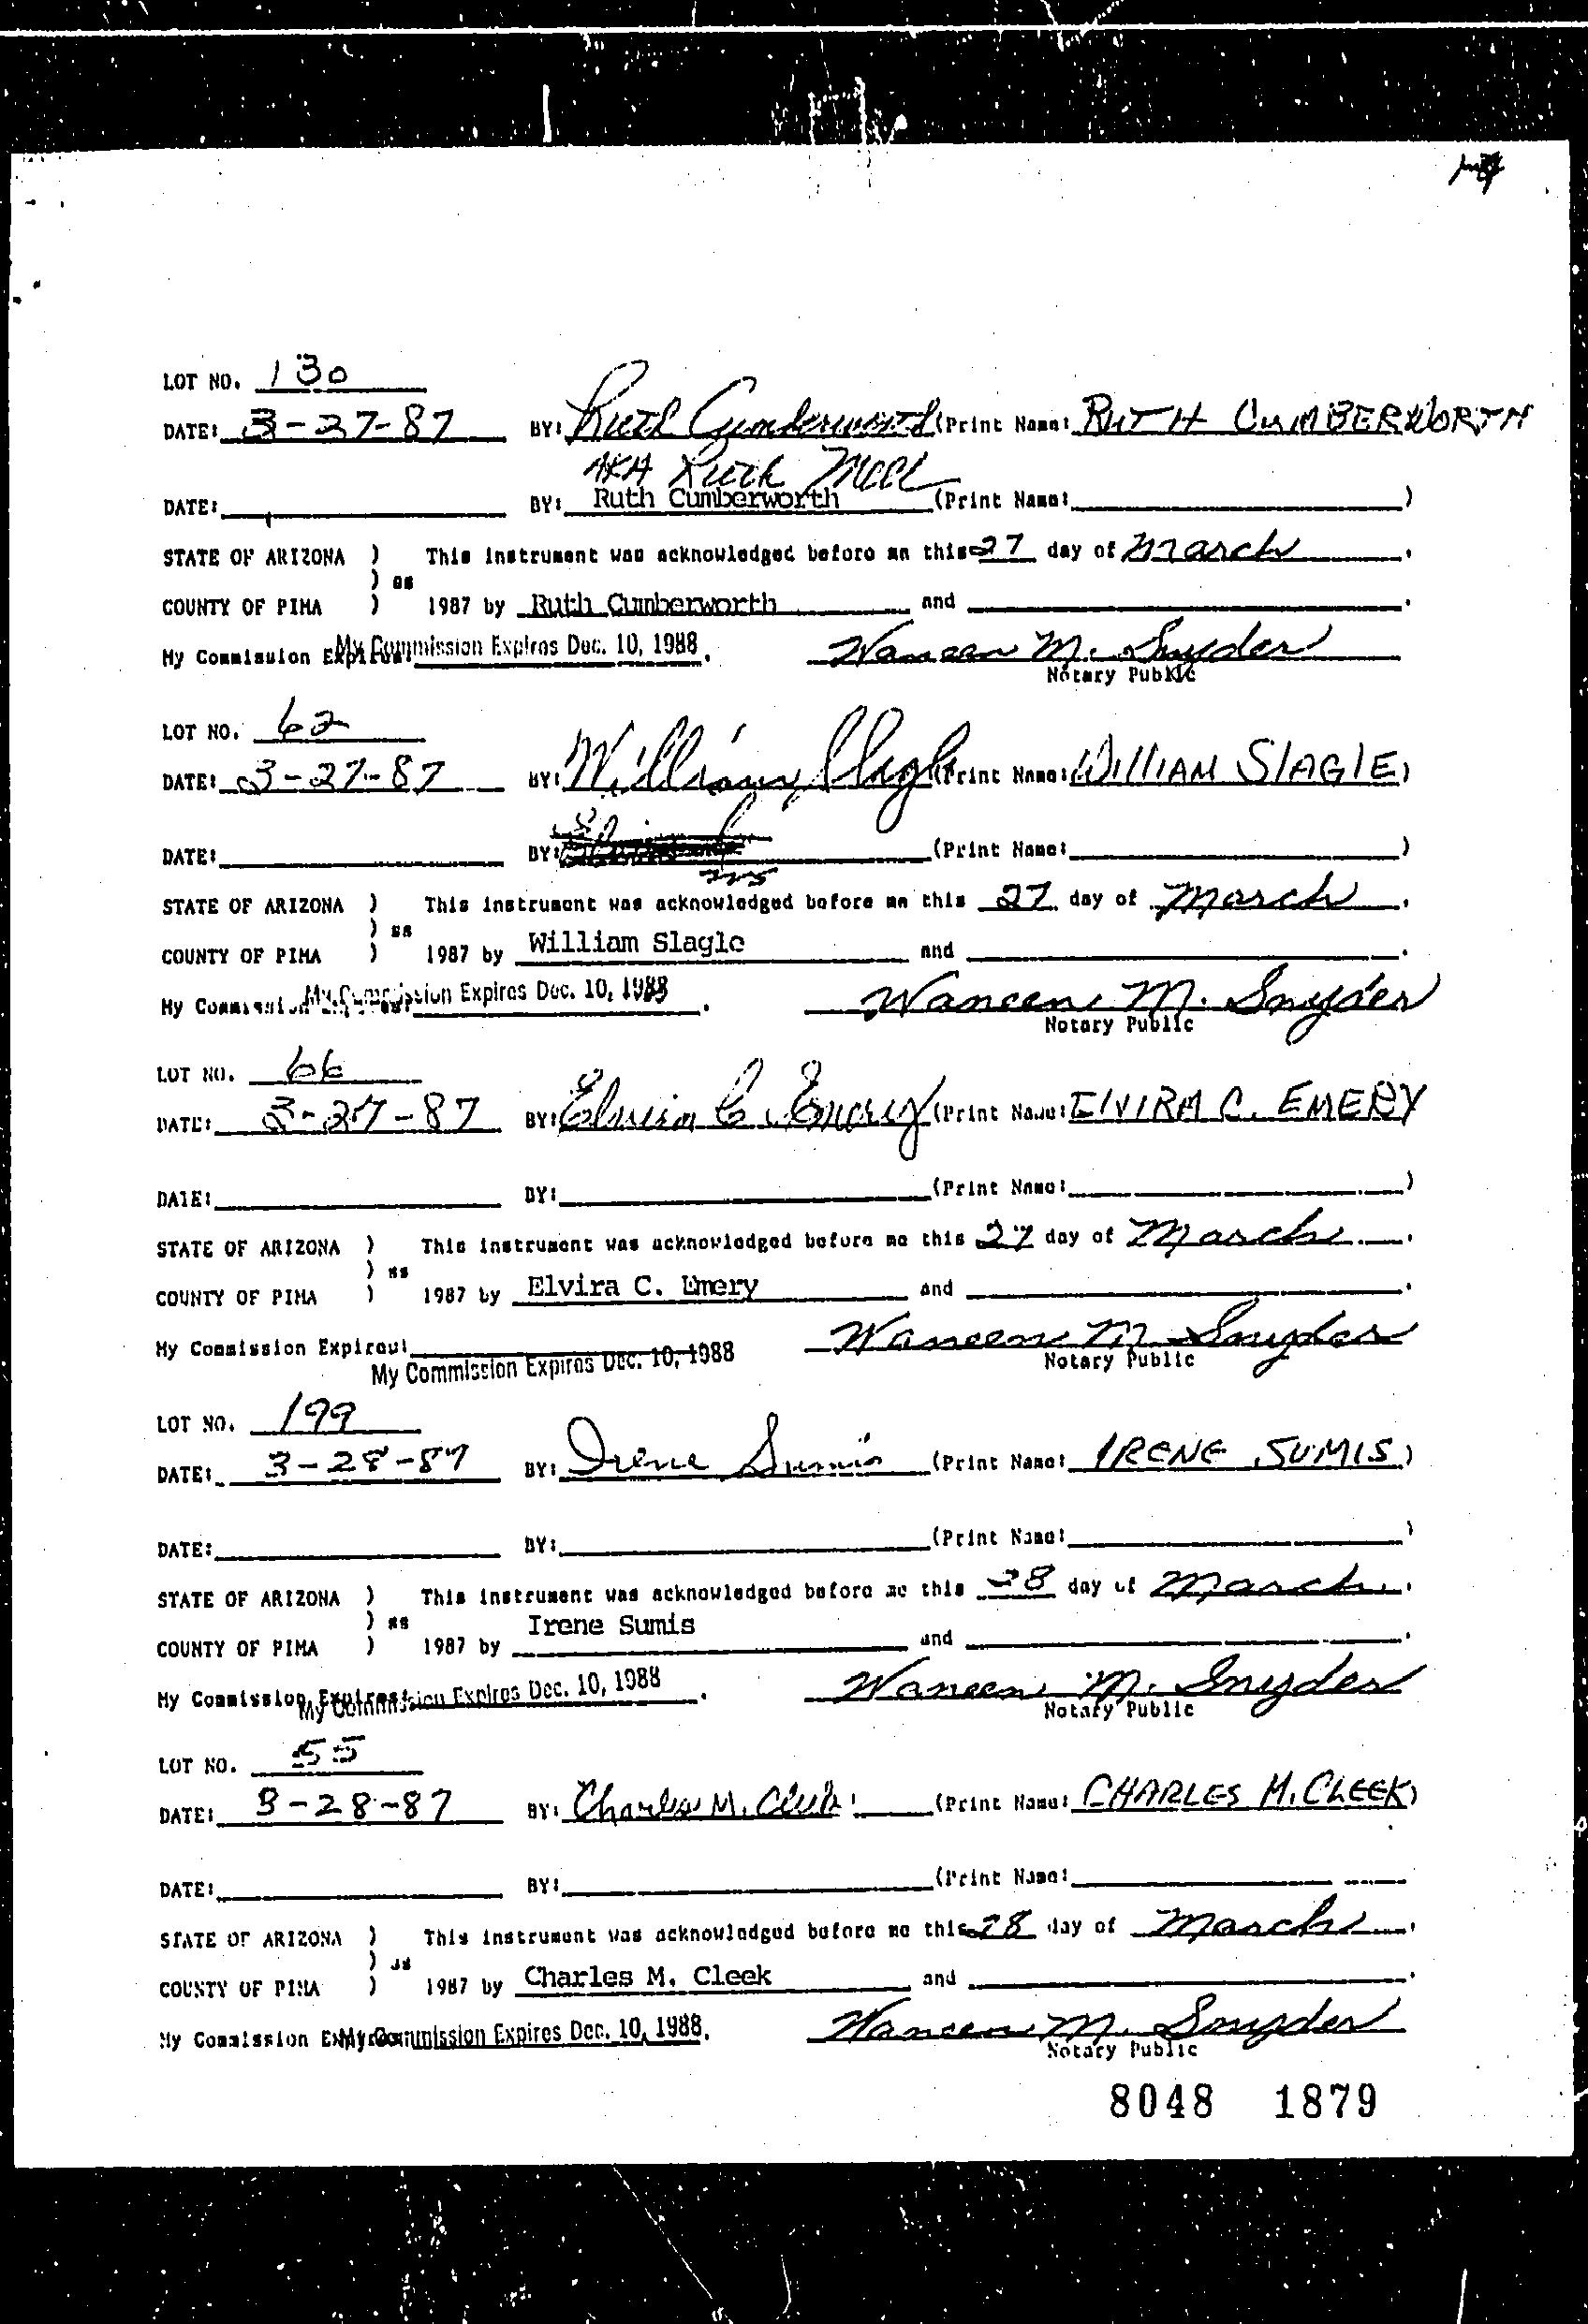 LOT NO. 130
DATE: 3-27-87 BY: Ruth Cumberworth (Print Name: RUTH CUMBERWORTH
AKA Ruth
DATE: BY: Ruth Cumberworth (Print Name: )
STATE OF ARIZONA ) This instrument was acknowledged before me this 27 day of March.
) ss
COUNTY OF PIMA ) 1987 by Ruth Cumberworth and .
My Commission Expires: My Commission Expires Dec. 10, 1988. Waneen M. Snyder
Notary Public
LOT NO. 62
DATE: 3-27-87 BY: William Slagle (Print Name: WILLIAM SLAGLE)
DATE: BY: (Print Name: )
STATE OF ARIZONA ) This instrument was acknowledged before me this 27 day of March.
) ss
COUNTY OF PIMA ) 1987 by William Slagle and .
My Commission Expires: My Commission Expires Dec. 10, 1988. Waneen M. Snyder
Notary Public
LOT NO. 66
DATE: 3-27-87 BY: Elvira C. Emery (Print Name: ELVIRA C. EMERY
DATE: BY: (Print Name: )
STATE OF ARIZONA ) This instrument was acknowledged before me this 27 day of March.
) ss
COUNTY OF PIMA ) 1987 by Elvira C. Emery and .
My Commission Expires: Waneen M Snyder
My Commission Expires Dec. 10, 1988 Notary Public
LOT NO. 199
DATE: 3-28-87 BY: Irene Sumis (Print Name: IRENE SUMIS)
DATE: BY: (Print Name: )
STATE OF ARIZONA ) This instrument was acknowledged before me this 28 day of March.
) ss Irene Sumis
COUNTY OF PIMA ) 1987 by and .
My Commission Expires: My Commission Expires Dec. 10, 1988. Waneen M. Snyder
Notary Public
LOT NO. 55
DATE: 3-28-87 BY: Charles M. Cleek (Print Name: CHARLES M. CLEEK)
DATE: BY: (Print Name:
STATE OF ARIZONA ) This instrument was acknowledged before me this 28 day of March.
) ss
COUNTY OF PIMA ) 1987 by Charles M. Cleek and .
My Commission Expires: My Commission Expires Dec. 10, 1988. Waneen M. Snyder
Notary Public
8048 1879